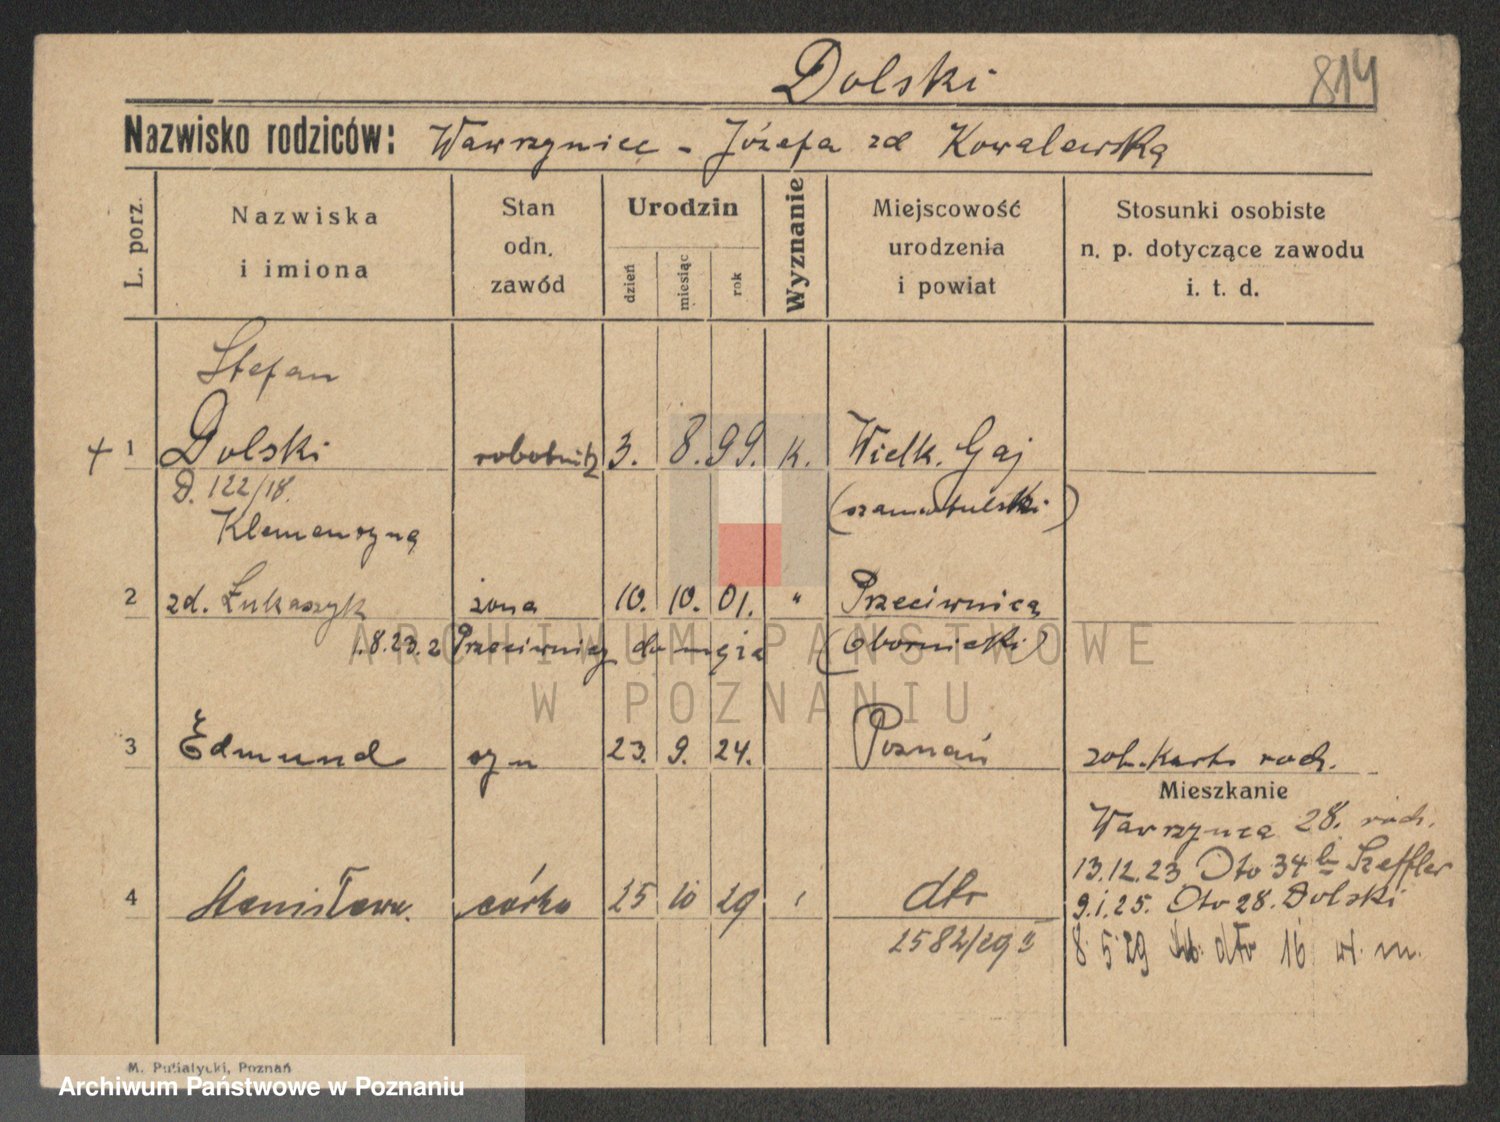 Dolski
814
Nazwisko rodziców: Wawrzyniec - Józefa zd Kowalewska
L. porz.
Nazwiska
i imiona
Stan
odn.
zawód
Urodzin
dzień
miesiąc
rok
Wyznanie
Miejscowość
urodzenia
i powiat
Stosunki osobiste
n. p. dotyczące zawodu
i. t. d.
Stefan
+ 1 Dolski robotnik 3. 8. 99. K. Wielk. Gaj
D. 122/18. (szamotulski)
Klemenszyna
2 zd. Łukaszyk żona 10. 10. 01. " Przeciwnica
1.8.23. z Przeciwnicy do męża (obornicki)
ARCHIWUM PAŃSTWOWE
W POZNANIU
3 Edmund syn 23. 9. 24. Poznań zob. karta rodz.
Mieszkanie
Wawrzyńca 28. rodz.
13.12.23 Oto 34 b Szeffler
4 Stanisława córka 25 10 29 dto 9.1.25. Oto 28. Dolski
2582/29 II 8.5.29 dto 16 wł. m.
M. Putiatycki, Poznań
Archiwum Państwowe w Poznaniu